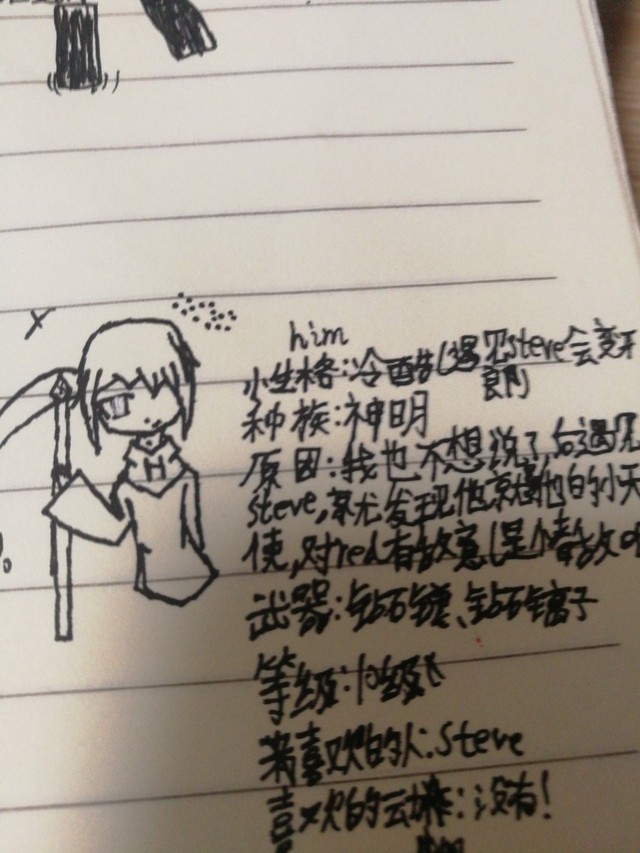 him
性格:冷酷(遇见steve会变开
朗)
种族:神明
原因:我也不想说了,后遇见
steve,就发现他就是他的小天
使,对red有敌意(是个情敌
武器:钻石镰、钻石镐子
等级:10级
喜欢的人:steve
喜欢的动:没有!